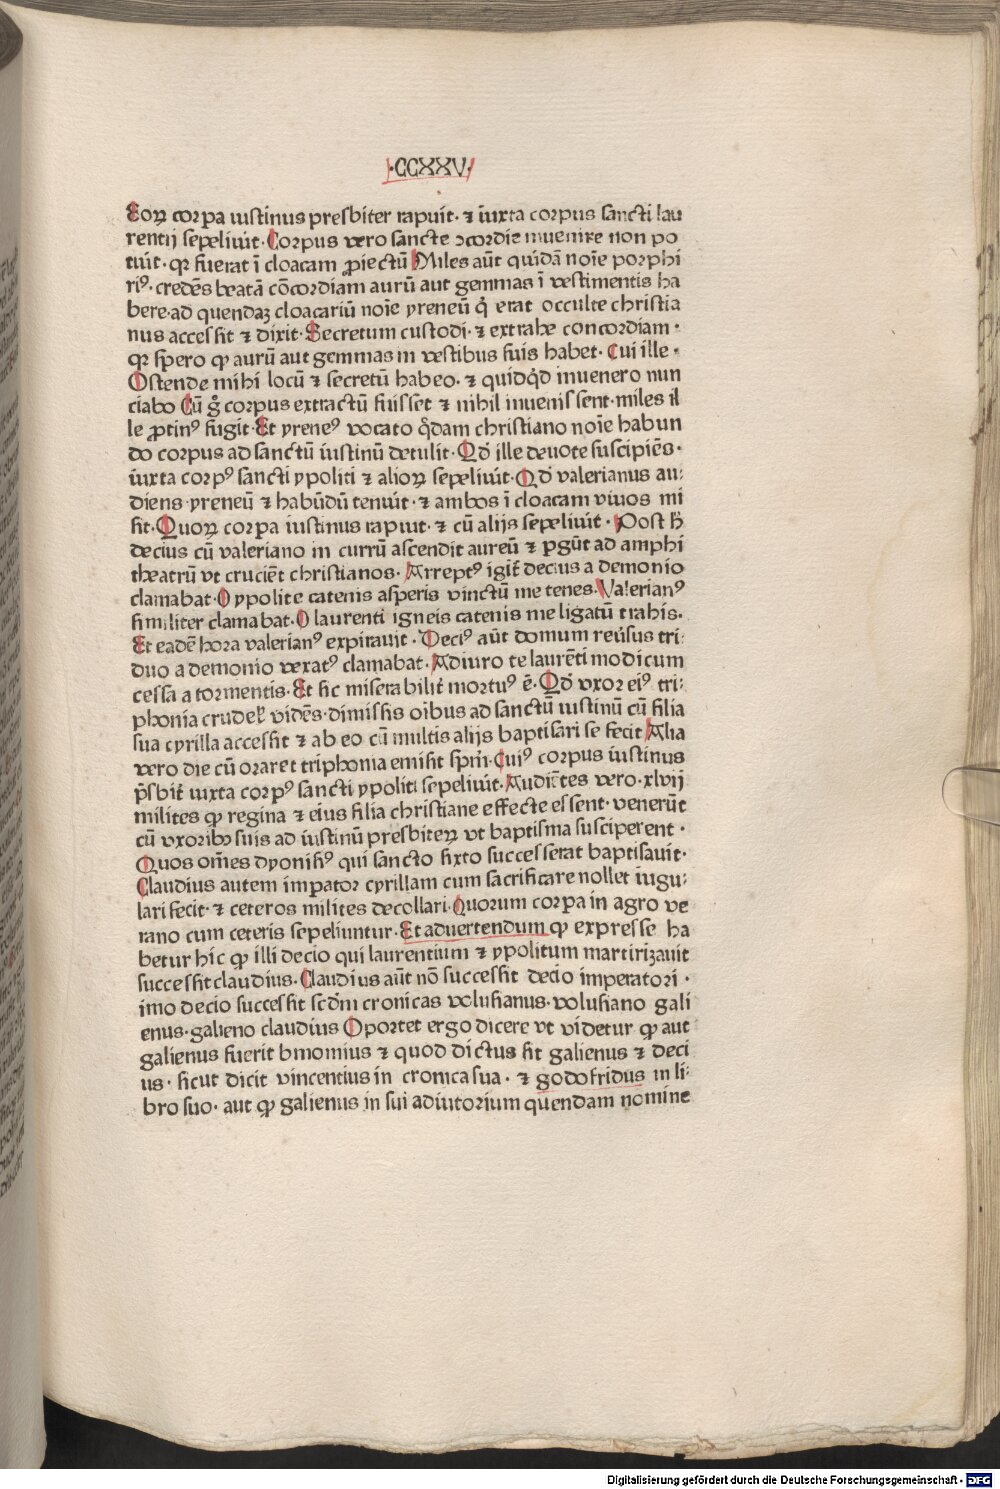 ·CCXXV·
Eoꝝ corpa iustinus presbiter rapuit· ⁊ iuxta corpus sancti lau
rentij sepeliuit· Corpus vero sancte ꝯcordie inuenire non po
tuit· qꝛ fuerat ī cloacam ꝓiectū Miles aūt quidā noīe porphi
riꝰ· credēs beatā cōcordiam aurū aut gemmas ī vestimentis ha
bere· ad quendaꝫ cloacariū noīe yreneū q̇ erat occulte christia
nus accessit ⁊ dixit· Secretum custodi· ⁊ extrahe concordiam·
qꝛ spero ꝙ aurū aut gemmas in vestibus suis habet· Cui ille·
Ostende mihi locū ⁊ secretū habeo· ⁊ quidqd̓ inuenero nun
ciabo Cū g̊ corpus extractū fuisset ⁊ nihil inuenissent· miles il
le ꝓtinꝰ fugit· Et yreneꝰ vocato q̄dam christiano noīe habun
do corpus ad sanctū iustinū detulit· Qd̓ ille deuote suscipiēs·
iuxta corpꝰ sancti ypoliti ⁊ alioꝝ sepeliuit· Qd̓ valerianus au⸗
diens· yreneū ⁊ habūdū tenuit· ⁊ ambos ī cloacam viuos mi
sit· Quoꝝ corpa iustinus rapuit· ⁊ cū alijs sepeliuit· Post h̄
decius cū valeriano in currū ascendit aureū ⁊ ꝑgūt ad amphi
theatrū vt cruciēt christianos· Arreptꝰ igit̄ decius a demonio
clamabat· O ypolite catenis asperis vinctū me tenes· Valerianꝰ
similiter clamabat· O laurenti igneis catenis me ligatū trahis·
Et eadē hora valerianꝰ expirauit· Deciꝰ aūt domum reūsus tri⸗
duo a demonio vexatꝰ clamabat· Adiuro te laurēti modicum
cessa a tormentis· Et sic miserabilit̄ mortuꝰ ē· Qd̓ vxor eiꝰ tri⸗
phonia crudeł vidēs· dimissis oībus ad sanctū iustinū cū filia
sua cyrilla accessit ⁊ ab eo cū multis alijs baptisari se fecit Alia
vero die cū oraret triphonia emisit sp̄m· Cuiꝰ corpus iustinus
p̄sbit̄ iuxta corpꝰ sancti ypoliti sepeliuit· Audiētes vero· xlvij
milites ꝙ regina ⁊ eius filia christiane effecte essent· venerūt
cū vxoribꝰ suis ad iustinū presbiteꝝ vt baptisma susciperent·
Quos om̄es dyonisiꝰ qui sancto sixto successerat baptisauit·
Claudius autem imperator cyrillam cum sacrificare nollet iugu⸗
lari fecit· ⁊ ceteros milites decollari· Quorum corpa in agro ve
rano cum ceteris sepeliuntur· Et aduertendum ꝙ expresse ha
betur hic ꝙ illi decio qui laurentium ⁊ ypolitum martirizauit
successit claudius· Claudius aūt nō successit decio imperatori·
imo decio successit scd̄m cronicas volusianus· volusiano gali
enus· galieno claudius Oportet ergo dicere vt videtur ꝙ aut
galienus fuerit binomius ⁊ quod dictus sit galienus ⁊ deci
us· sicut dicit vincentius in cronica sua· ⁊ godofridus in li⸗
bro suo· aut ꝙ galienus in sui adiutorium quendam nomine
Digitalisierung gefördert durch die Deutsche Forschungsgemeinschaft - DFG